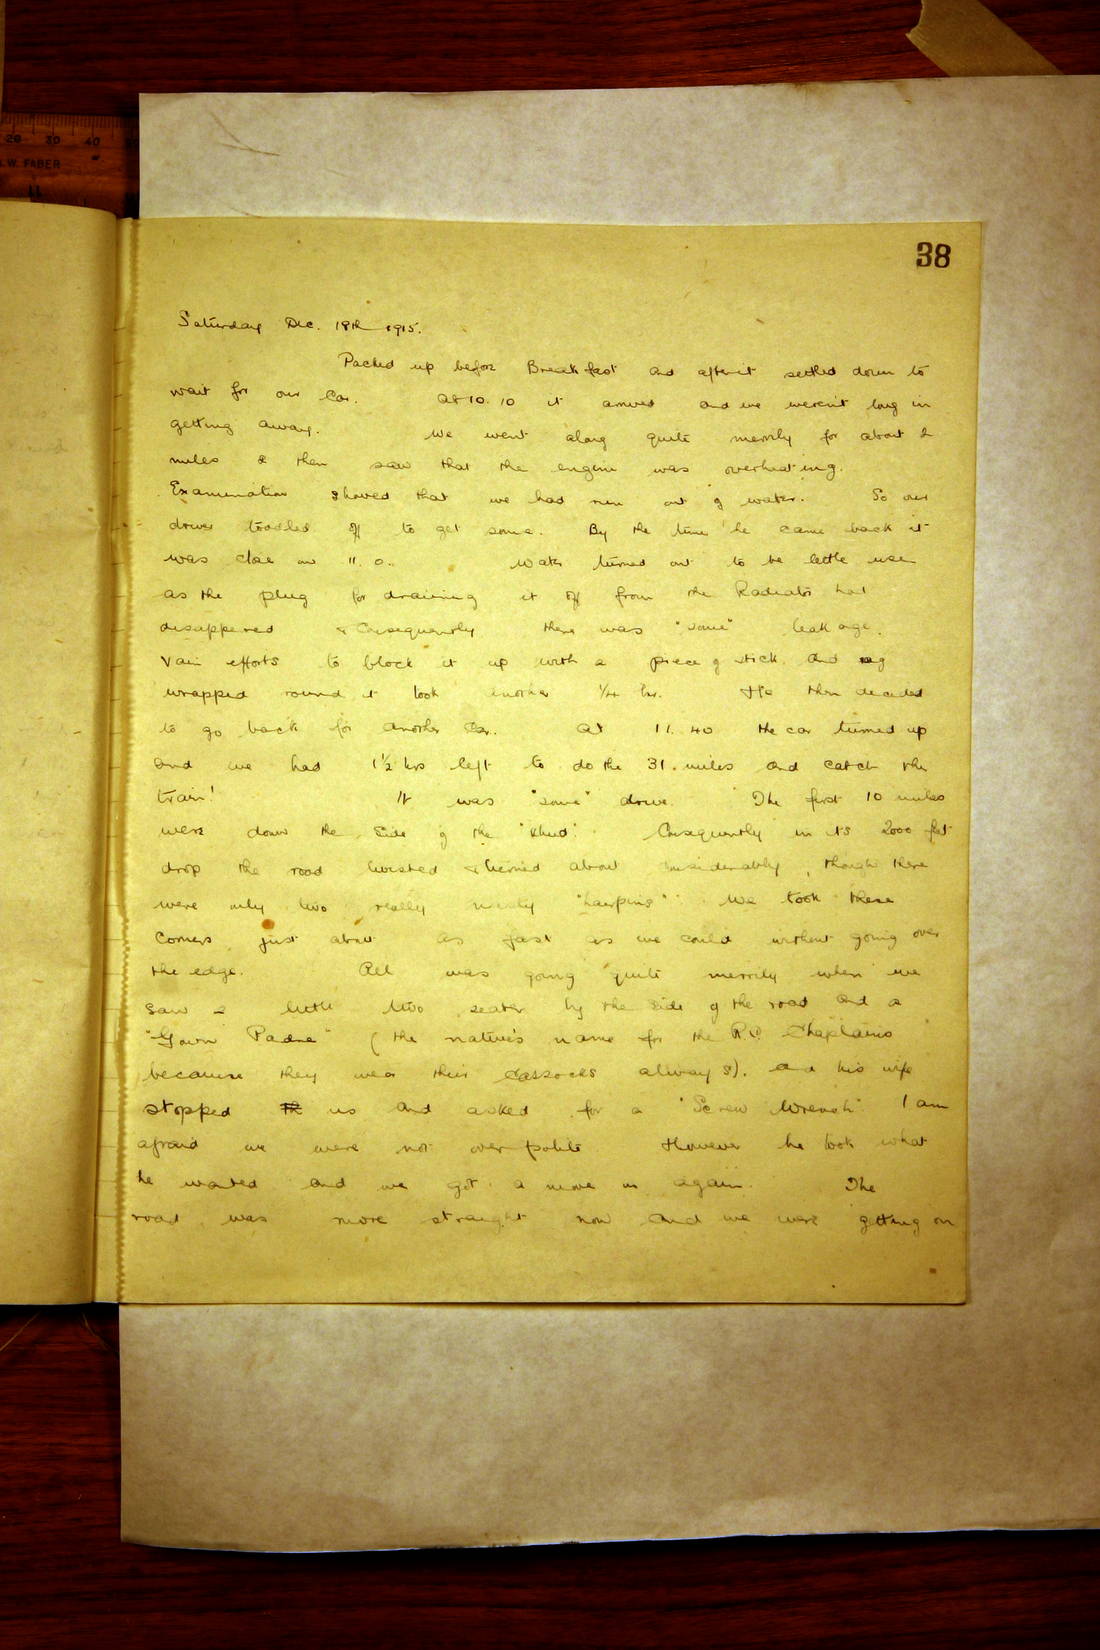 20 30 40
W. FABER
11
38
Saturday Dec. 18th 1915.
Packed up before Breakfast and after it settled down to
wait for our Car. At 10.10 it arrived and we weren't long in
getting away. We went along quite merrily for about 2
miles & then saw that the engine was overheating.
Examination showed that we had run out of water. So our
driver toddled off to get some. By the time he came back it
was close on 11.0.. Water turned out to be little use
as the plug for draining it off from the Radiator had
disappeared & Consequently there was "some" leakage.
Vain efforts to block it up with a piece of stick and rag
wrapped round it took another 1/4 hr. He then decided
to go back for another Car. At 11.40 the car turned up
and we had 1½ hrs left to do the 31 miles and catch the
train! It was "some" drive. The first 10 miles
were down the side of the "khud". Consequently in its 2000 feet
drop the road twisted & turned about considerably, though there
were only two really nasty "hairpins". We took these
Corners just about as fast as we could without going over
the edge. All was going quite merrily when we
saw a little two seater by the side of the road and a
"Gown Padre" (the native's name for the R.C. Chaplains
because they wear their cassocks always). and his wife
stopped us and asked for a "Screw Wrench" I am
afraid we were not over polite However he took what
he wanted and we got a move on again. The
road was more straight now and we were getting on